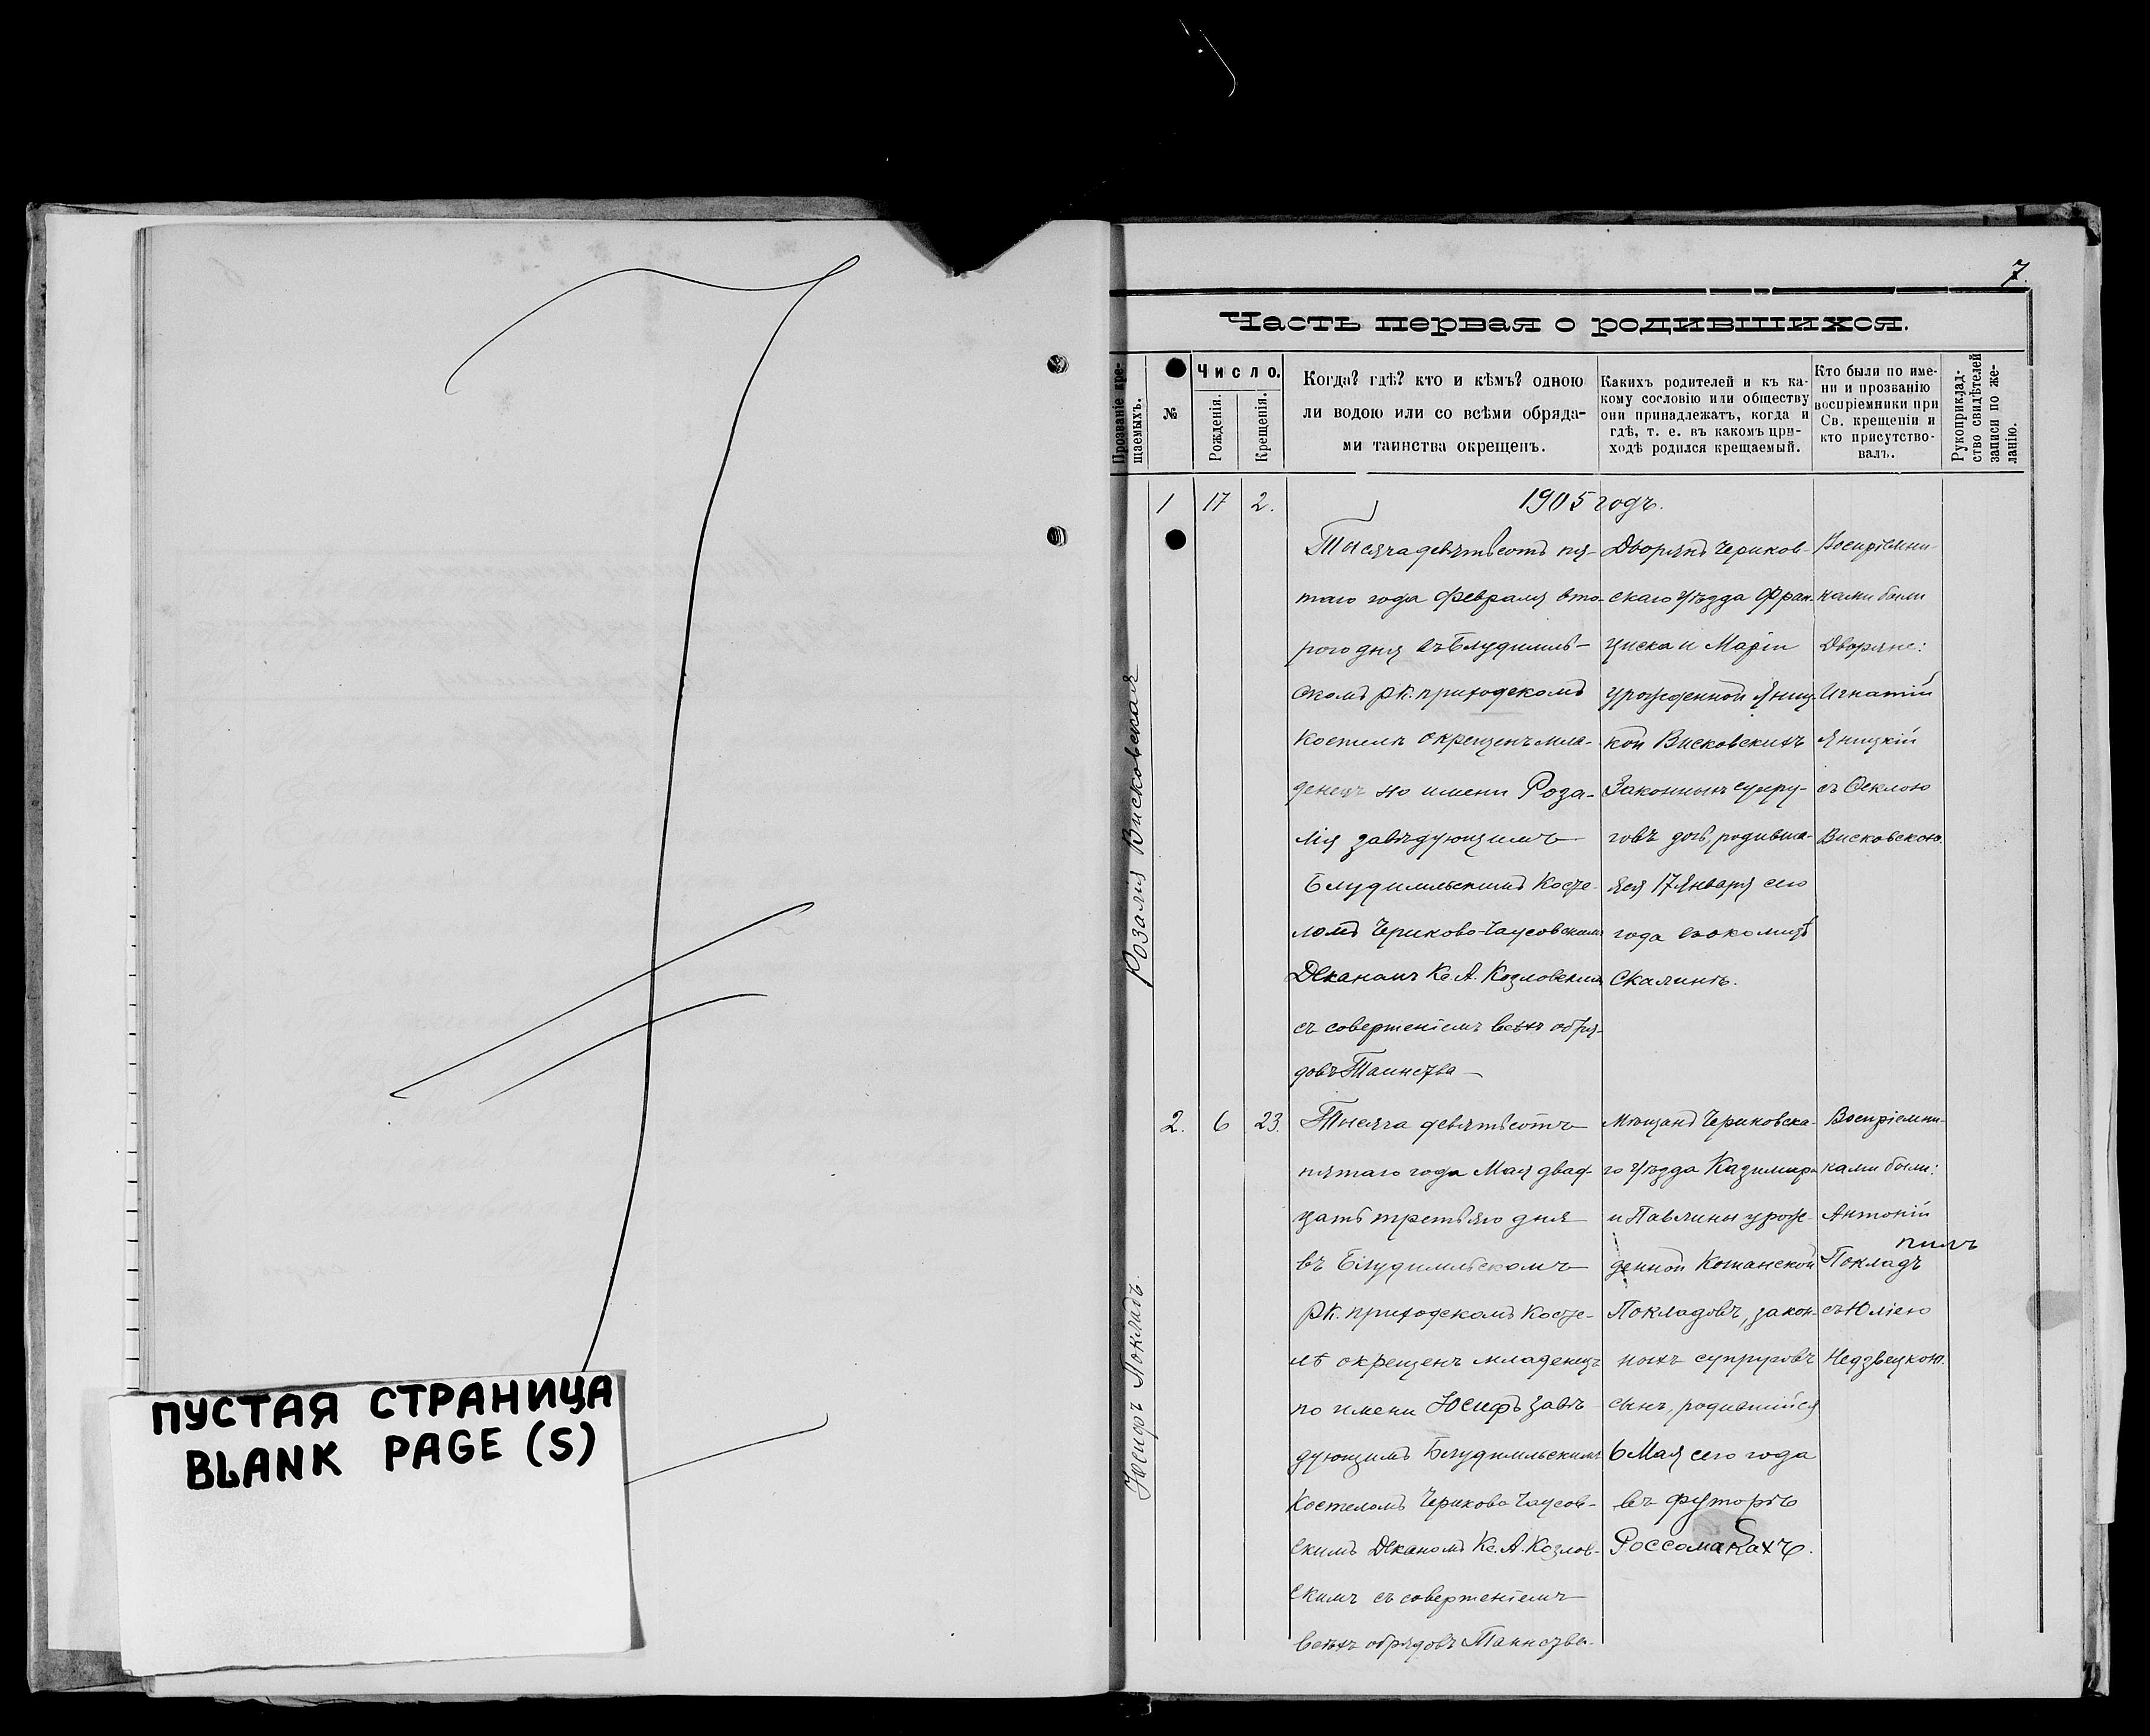 ПУСТАЯ СТРАНИЦА
BLANK PAGE (S)
7.
Часть первая о родившихся.
Прозваніе кре-
щаемыхъ.
№
Число.
Рожденія.
Крещенія.
Когда? гдѣ? кто и кѣмъ? одною
ли водою или со всѣми обряда-
ми таинства окрещенъ.
Какихъ родителей и къ ка-
кому сословію или обществу
они принадлежатъ, когда и
гдѣ, т. е. въ какомъ при-
ходѣ родился крещаемый.
Кто были по име-
ни и прозванію
воспріемники при
Св. крещеніи и
кто присутство-
валъ.
Рукоприклад-
ство свидѣтелей
записи по же-
ланію.
1905 годъ.
Розалія Висковская
1
17
2.
Тысяча девятьсотъ пя-
таго года февраля вто-
рого дня въ Блудимль-
скомъ р.к. приходскомъ
костелѣ окрещенъ мла-
денецъ по имени Роза-
лія завѣдующимъ
Блудимльскимъ Косте-
ломъ Чериково-Чаусовскимъ
Деканомъ Кс. А. Козловскимъ
съ совершеніемъ всѣхъ обря-
довъ Таинства
Дворянъ Чериков-
скаго уѣзда Фран-
циска и Маріи
урожденной Яниц-
кой Висковскихъ
Законныхъ супру-
говъ дочь, родивша-
яся 17 Января сего
года въ околицѣ
Скалинѣ.
Воспріемни-
ками были
Дворяне:
Игнатій
Яницкій
съ Ѳеклою
Висковскою.
Іосифъ Покладъ.
2.
6
23.
Тысяча девятьсотъ
пятаго года Мая двад-
цать третьяго дня
въ Блудимльскомъ
р.к. приходскомъ Косте-
лѣ окрещенъ младенецъ
по имени Іосифъ завѣ-
дующимъ Блудимльскимъ
Костеломъ Чериково Чаусов-
скимъ Деканомъ Кс. А. Козлов-
скимъ съ совершеніемъ
всѣхъ обрядовъ Таинства.
Мѣщанъ Чериковска-
го уѣзда Казимира
и Павлины урож-
денной Кошанской
Покладовъ, закон-
ныхъ супруговъ
сынъ, родившійся
6 Мая сего года
въ футорѣ
Россомахахъ.
Воспріемни-
ками были:
Антоній
Покладъ
съ Юліею
Недзвецкою.